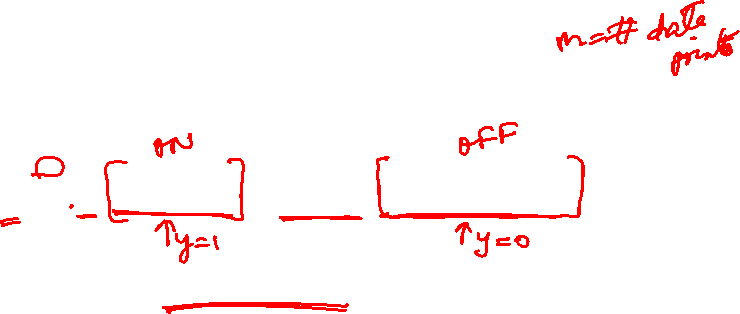 m = # data
points
ON
OFF
D
= . - [ ] — [ ]
↑y=1
↑y=0